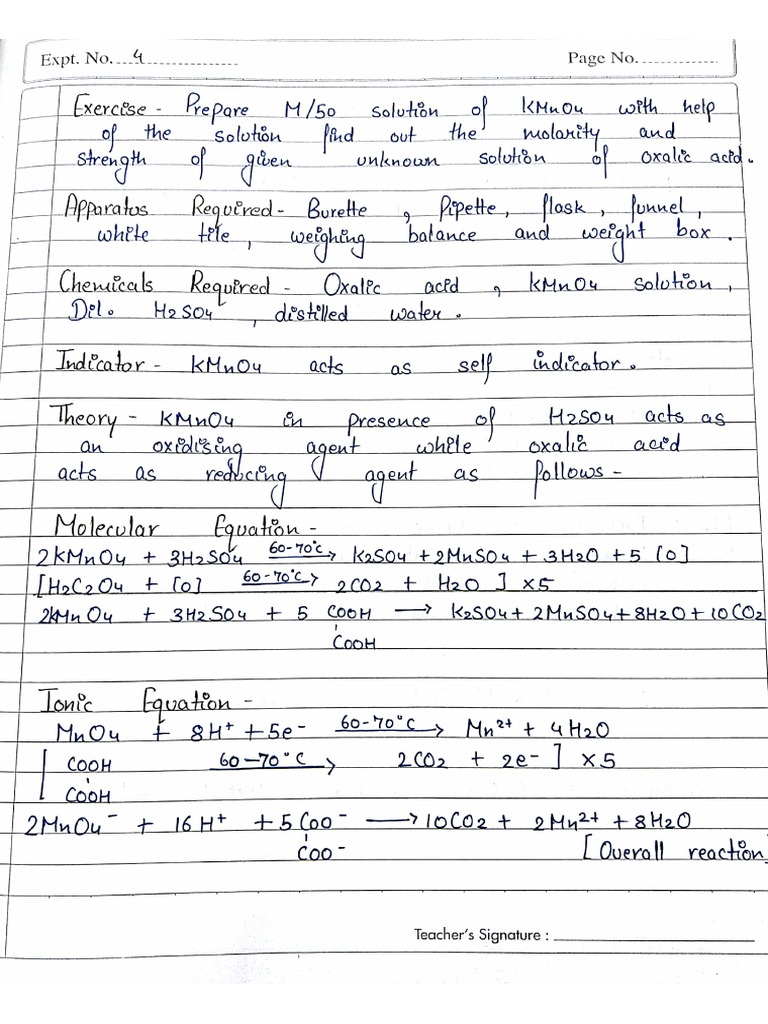 Expt. No. 4
Page No.
Exercise - Prepare M/50 solution of KMnO4 with help
of the solution find out the molarity and
strength of given unknown solution of oxalic acid.
Apparatus Required - Burette, Pipette, flask, funnel,
white tile, weighing balance and weight box.
Chemicals Required - Oxalic acid, KMnO4 solution,
Dil. H2SO4, distilled water.
Indicator - KMnO4 acts as self indicator.
Theory - KMnO4 in presence of H2SO4 acts as
an oxidising agent while oxalic acid
acts as reducing agent as follows -
Molecular Equation -
2KMnO4 + 3H2SO4 60-70°C → K2SO4 + 2MnSO4 + 3H2O + 5 [O]
[H2C2O4 + [O] 60-70°C → 2CO2 + H2O ] x5
2KMnO4 + 3H2SO4 + 5 COOH → K2SO4 + 2MnSO4 + 8H2O + 10CO2
COOH
Ionic Equation -
MnO4 + 8H+ + 5e- 60-70°C → Mn2+ + 4H2O
[ COOH 60-70°C → 2CO2 + 2e- ] x5
COOH
2MnO4- + 16H+ + 5COO- → 10CO2 + 2Mn2+ + 8H2O
COO- [Overall reaction]
Teacher's Signature :